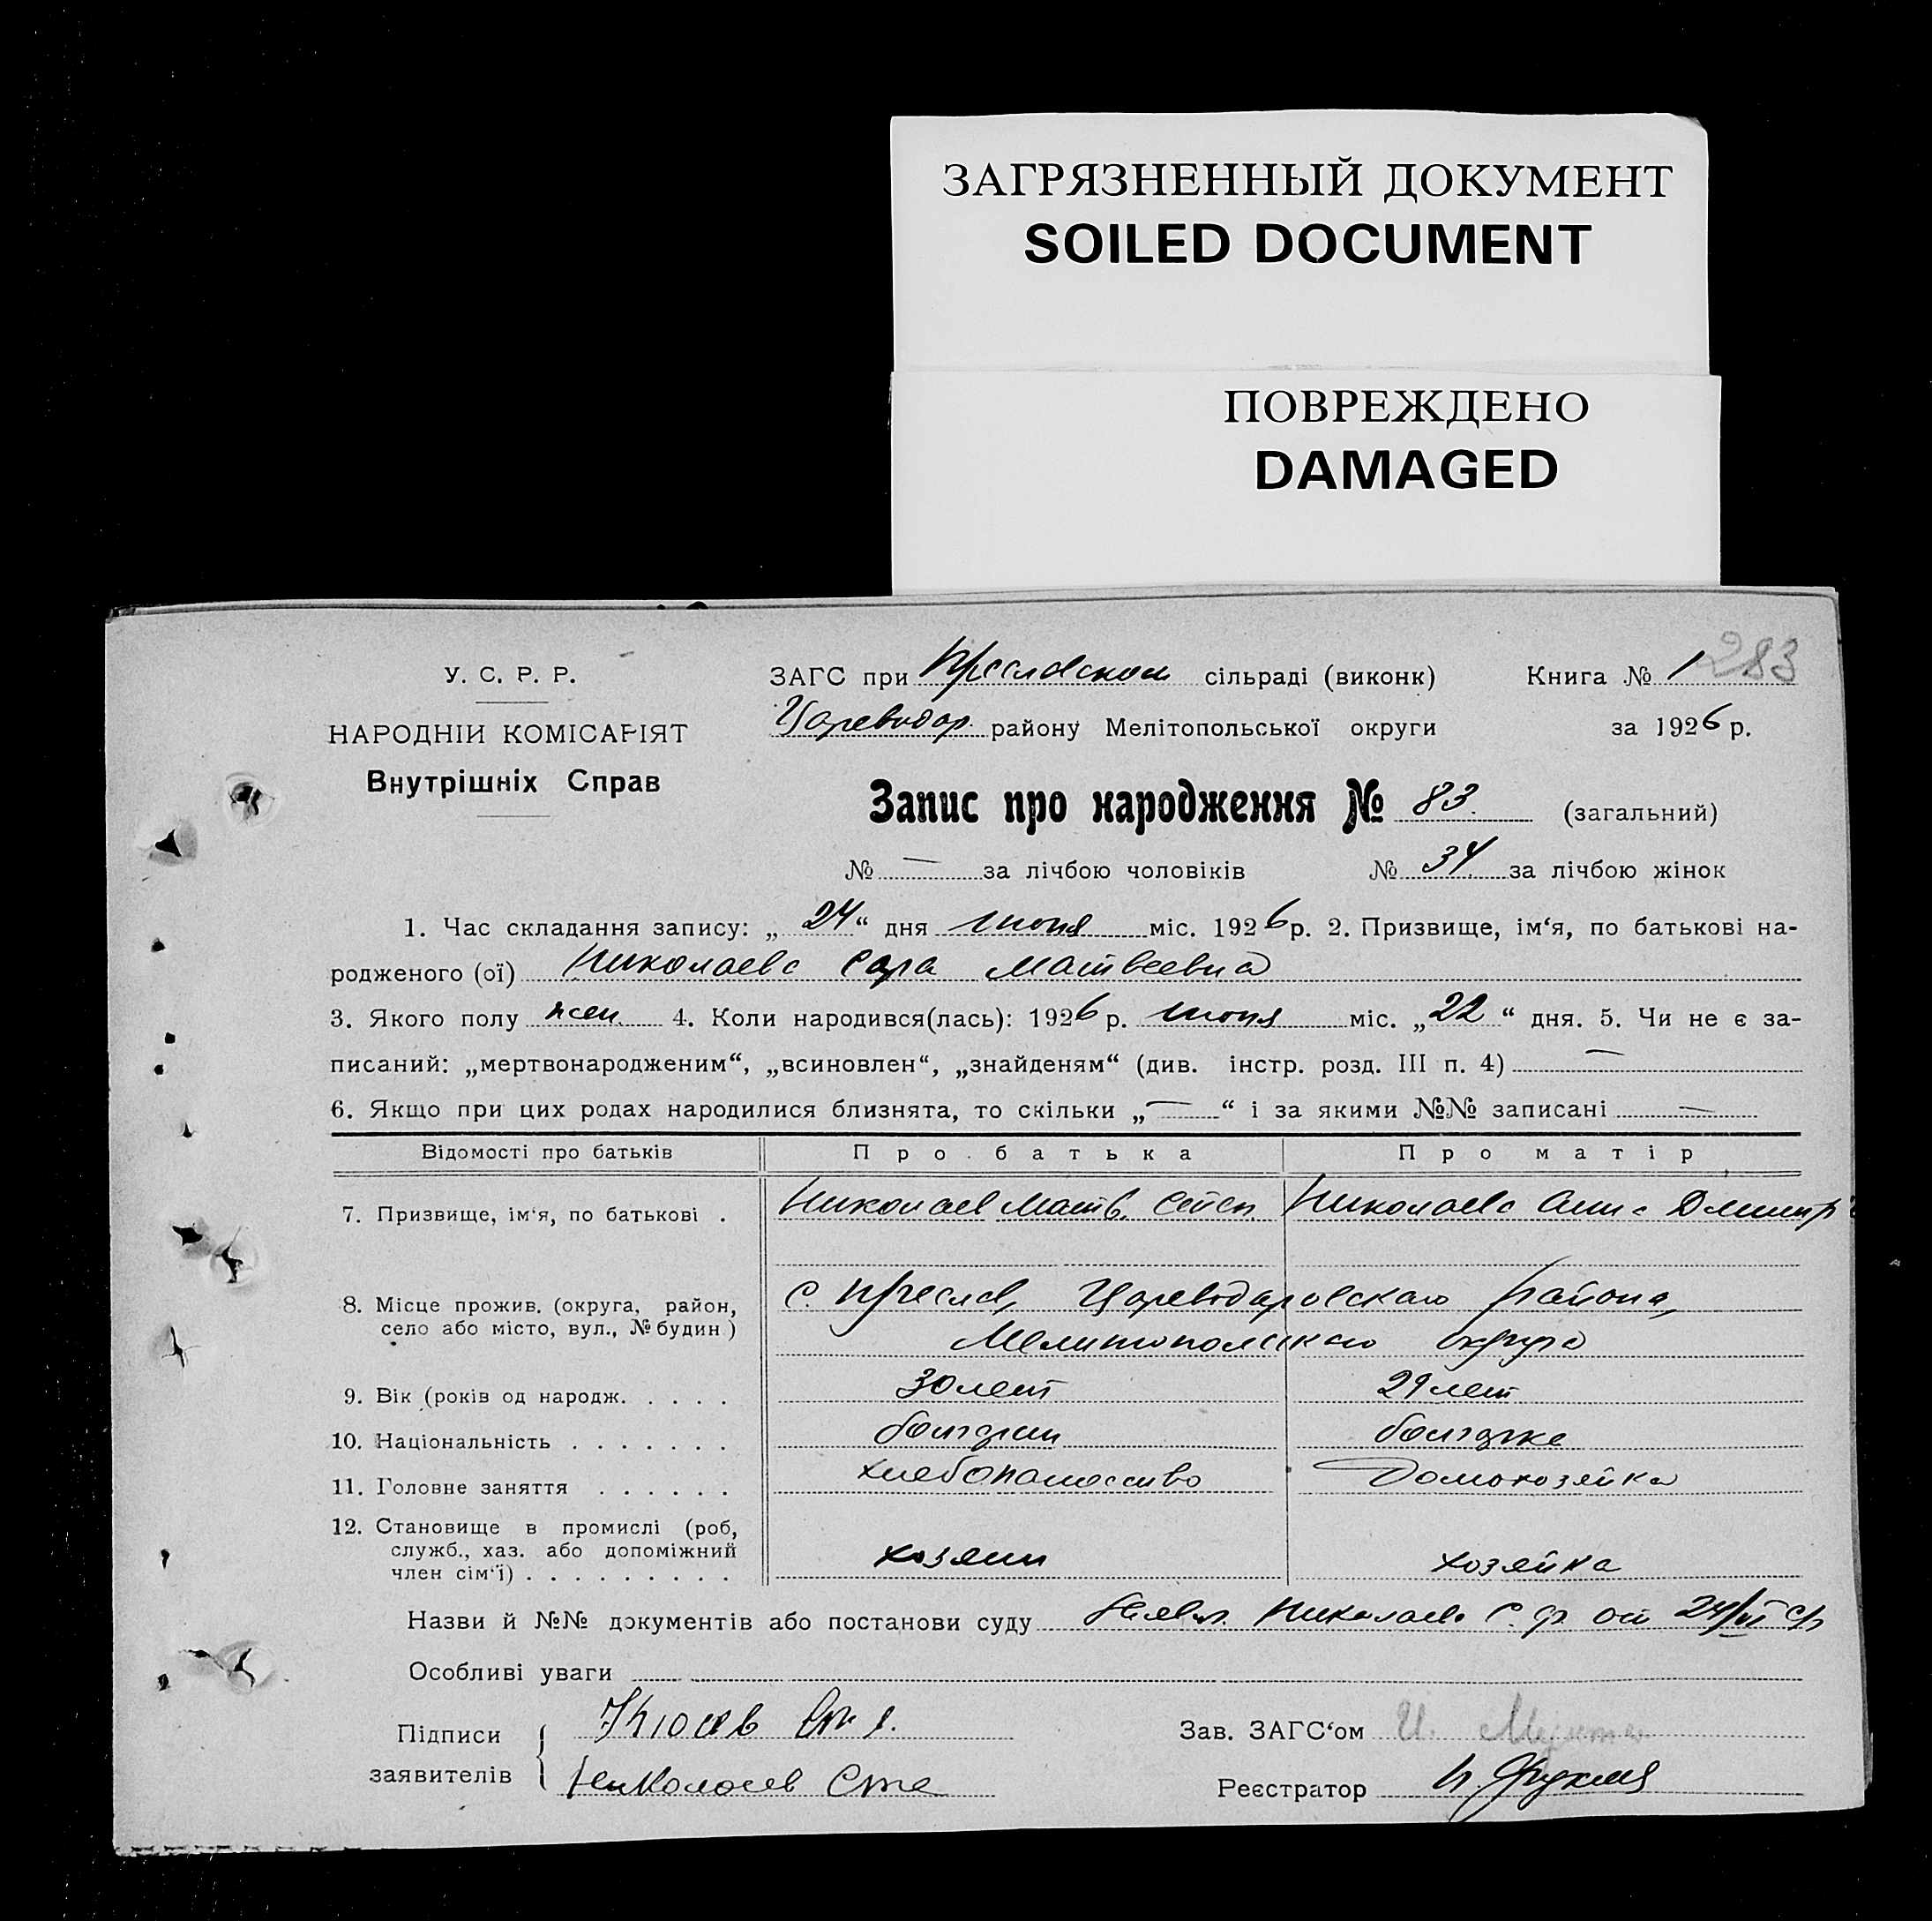 ЗАГРЯЗНЕННЫЙ ДОКУМЕНТ
SOILED DOCUMENT
ПОВРЕЖДЕНО
DAMAGED
283
У. С. Р. Р.
НАРОДНІЙ КОМІСАРІЯТ
Внутрішніх Справ
ЗАГС при Преславском сільраді (виконк) Книга № 1
Цареводар. району Мелітопольської округи за 1926 р.
Запис про народження № 83. (загальний)
№ — за лічбою чоловіків № 34. за лічбою жінок
1. Час складання запису: „24“ дня июня міс. 1926 р. 2. Призвище, ім‘я, по батькові на-
родженого (ої) Николаева Сара Матвеевна
3. Якого полу жен. 4. Коли народився(лась): 1926 р. июня міс. „22“ дня. 5. Чи не є за-
писаний: „мертвонародженим“, „всиновлен“, „знайденям“ (див. інстр. розд. III п. 4) —
6. Якщо при цих родах народилися близнята, то скільки „—“ і за якими №№ записані —
Відомості про батьків Про батька Про матір
7. Призвище, ім‘я, по батькові . Николаев Матв. Степ. Николаева Анна Дмитр
8. Місце прожив. (округа, район, с. Преслав, Цареводаровскаго района,
село або місто, вул., № будин) Мелитопольскаго округа
9. Вік (років од народж. . . . . 30 лет 29 лет
10. Національність . . . . . . . болгарин болгарка
11. Головне заняття . . . . . . хлебопашество Домохозяйка
12. Становище в промислі (роб,
служб., хаз. або допоміжний хозяин хозяйка
член сім‘ї) . . . . . . . . .
Назви й №№ документів або постанови суду Заявл. Николаева С. от 24/VI с/г
Особливі уваги
Підписи Зав. ЗАГС‘ом И.
заявителів Николаев Реєстратор